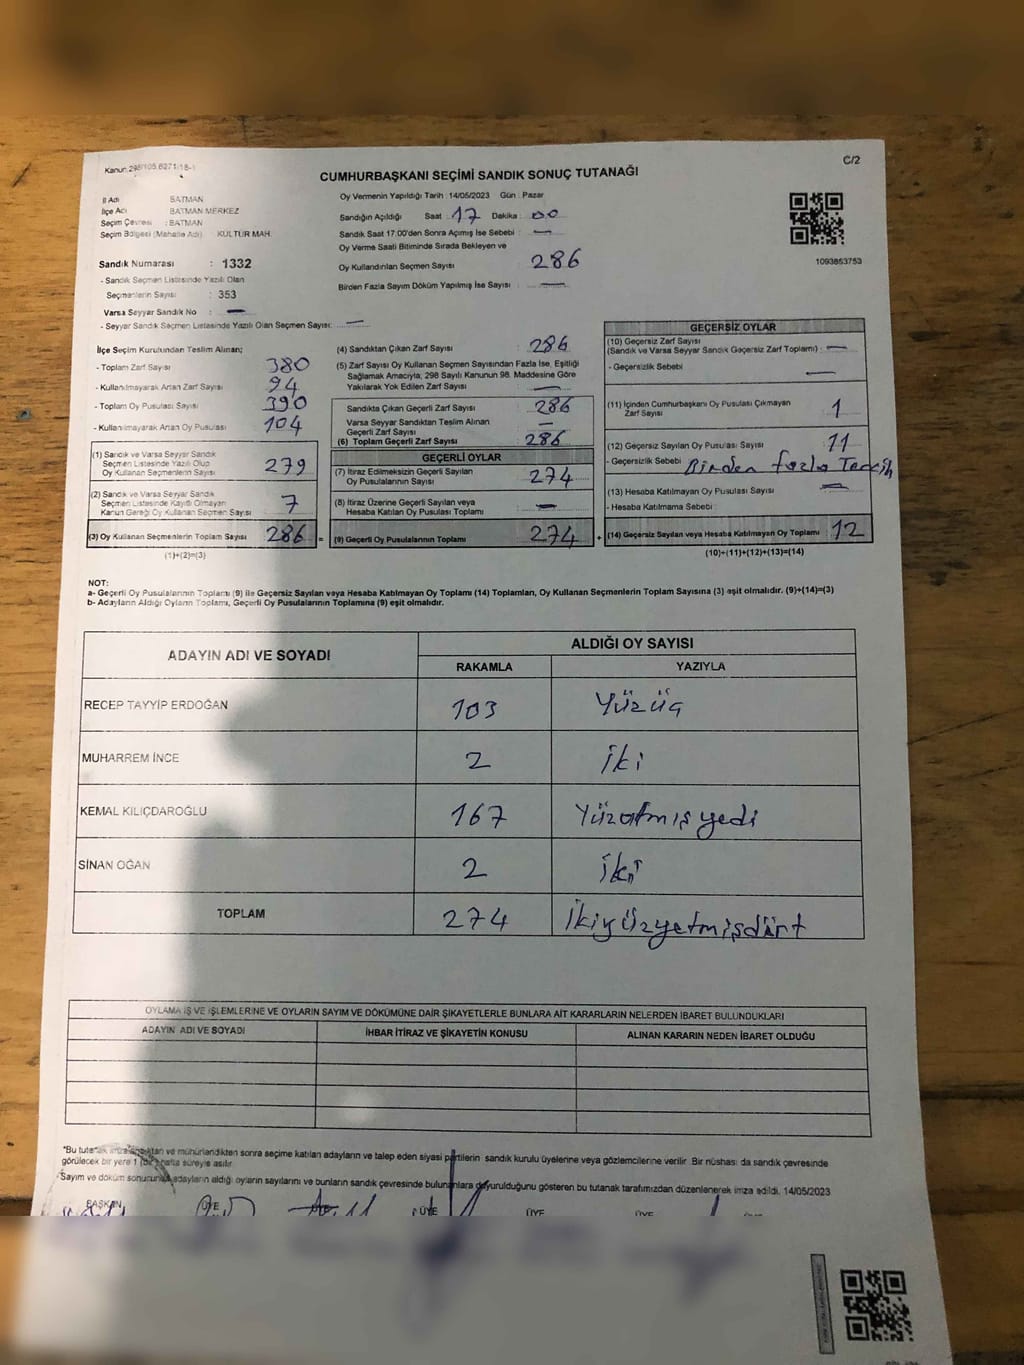 Kanun:298/105,6271/18-1
C/2
CUMHURBAŞKANI SEÇİMİ SANDIK SONUÇ TUTANAĞI
İl Adı BATMAN
İlçe Adı BATMAN MERKEZ
Seçim Çevresi : BATMAN
Seçim Bölgesi (Mahalle Adı) KÜLTÜR MAH.
Oy Vermenin Yapıldığı Tarih : 14/05/2023 Gün : Pazar
Sandığın Açıldığı Saat : 17 Dakika : 00
Sandık Saat 17:00'den Sonra Açımış İse Sebebi : —
Oy Verme Saati Bitiminde Sırada Bekleyen ve
Oy Kullandırılan Seçmen Sayısı : 286
Birden Fazla Sayım Döküm Yapılmış İse Sayısı : —
1093853753
Sandık Numarası : 1332
- Sandık Seçmen Listesinde Yazılı Olan
Seçmenlerin Sayısı : 353
Varsa Seyyar Sandık No : —
- Seyyar Sandık Seçmen Listesinde Yazılı Olan Seçmen Sayısı: —
İlçe Seçim Kurulundan Teslim Alınan;
- Toplam Zarf Sayısı 380
- Kullanılmayarak Artan Zarf Sayısı 94
- Toplam Oy Pusulası Sayısı 390
- Kullanılmayarak Artan Oy Pusulası 104
(1) Sandık ve Varsa Seyyar Sandık
Seçmen Listesinde Yazılı Olup
Oy Kullanan Seçmenlerin Sayısı 279
(2) Sandık ve Varsa Seyyar Sandık
Seçmen Listesinde Kayıtlı Olmayan
Kanun Gereği Oy Kullanan Seçmen Sayısı 7
(3) Oy Kullanan Seçmenlerin Toplam Sayısı 286 =
(1)+(2)=(3)
(4) Sandıktan Çıkan Zarf Sayısı : 286
(5) Zarf Sayısı Oy Kullanan Seçmen Sayısından Fazla İse, Eşitliği
Sağlamak Amacıyla, 298 Sayılı Kanunun 98. Maddesine Göre
Yakılarak Yok Edilen Zarf Sayısı —
Sandıkta Çıkan Geçerli Zarf Sayısı : 286
Varsa Seyyar Sandıktan Teslim Alınan
Geçerli Zarf Sayısı : —
(6) Toplam Geçerli Zarf Sayısı : 286
GEÇERLİ OYLAR
(7) İtiraz Edilmeksizin Geçerli Sayılan
Oy Pusulasının Sayısı 274
(8) İtiraz Üzerine Geçerli Sayılan veya
Hesaba Katılan Oy Pusulası Toplamı —
(9) Geçerli Oy Pusulalarının Toplamı 274 +
GEÇERSİZ OYLAR
(10) Geçersiz Zarf Sayısı
(Sandık ve Varsa Seyyar Sandık Geçersiz Zarf Toplamı) : —
- Geçersizlik Sebebi —
(11) İçinden Cumhurbaşkanı Oy Pusulası Çıkmayan
Zarf Sayısı 1
(12) Geçersiz Sayılan Oy Pusulası Sayısı 11
- Geçersizlik Sebebi Birden fazla Tercih
(13) Hesaba Katılmayan Oy Pusulası Sayısı —
- Hesaba Katılmama Sebebi :
(14) Geçersiz Sayılan veya Hesaba Katılmayan Oy Toplamı 12
(10)+(11)+(12)+(13)=(14)
NOT:
a- Geçerli Oy Pusulalarının Toplamı (9) ile Geçersiz Sayılan veya Hesaba Katılmayan Oy Toplamı (14) Toplamları, Oy Kullanan Seçmenlerin Toplam Sayısına (3) eşit olmalıdır. (9)+(14)=(3)
b- Adayların Aldığı Oyların Toplamı, Geçerli Oy Pusulalarının Toplamına (9) eşit olmalıdır.
ADAYIN ADI VE SOYADI ALDIĞI OY SAYISI
RAKAMLA YAZIYLA
RECEP TAYYİP ERDOĞAN 103 Yüzüç
MUHARREM İNCE 2 iki
KEMAL KILIÇDAROĞLU 167 Yüzatmış yedi
SİNAN OĞAN 2 iki
TOPLAM 274 İkiyüzyetmişdört
OYLAMA İŞ VE İŞLEMLERİNE VE OYLARIN SAYIM VE DÖKÜMÜNE DAİR ŞİKAYETLERLE BUNLARA AİT KARARLARIN NELERDEN İBARET BULUNDUKLARI
ADAYIN ADI VE SOYADI İHBAR İTİRAZ VE ŞİKAYETİN KONUSU ALINAN KARARIN NEDEN İBARET OLDUĞU
*Bu tutanak imzalandıktan ve mühürlendikten sonra seçime katılan adayların ve talep eden siyasi partilerin sandık kurulu üyelerine veya gözlemcilerine verilir. Bir nüshası da sandık çevresinde
görülecek bir yere 1 (bir) hafta süreyle asılır.
Sayım ve döküm sonucunda adayların aldığı oyların sayılarını ve bunların sandık çevresinde bulunanlara duyurulduğunu gösteren bu tutanak tarafımızdan düzenlenerek imza edildi. 14/05/2023
BAŞKAN ÜYE ÜYE ÜYE ÜYE